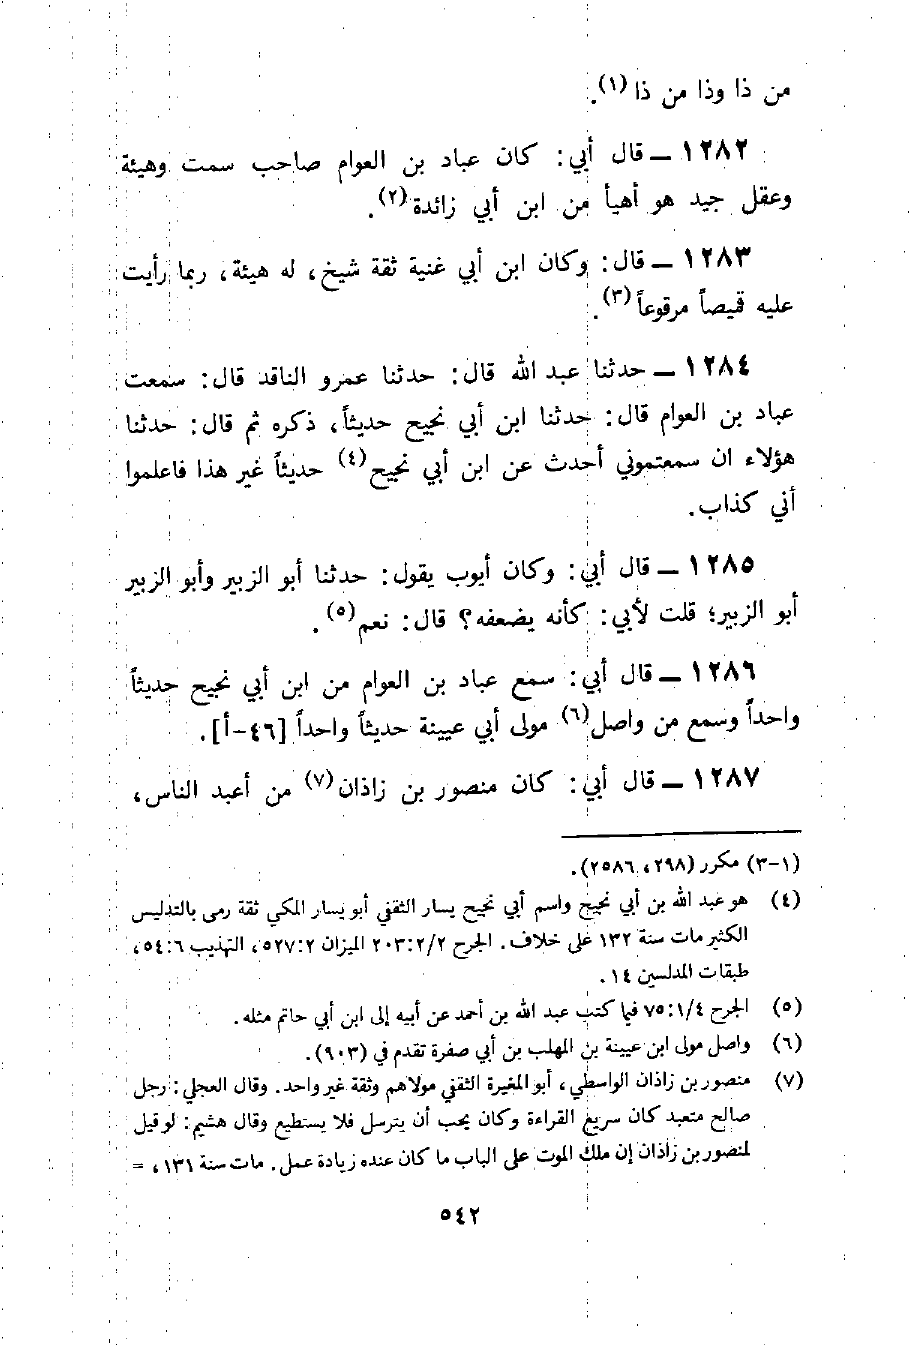 من ذا وذا من ذا (١).
١٢٨٢ ــ قال أبي: كان عباد بن العوام صاحب سمت وهيئة
وعقل جيد هو أهيأ من ابن أبي زائدة (٢).
١٢٨٣ ــ قال: وكان ابن أبي غنية ثقة شيخ، له هيئة، ربما رأيت
عليه قميصاً مرقوعاً (٣).
١٢٨٤ ــ حدثنا عبد الله قال: حدثنا عمرو الناقد قال: سمعت
عباد بن العوام قال: حدثنا ابن أبي نجيح حديثاً، ذكره ثم قال: حدثنا
هؤلاء ان سمعتموني أحدث عن ابن أبي نجيح (٤) حديثاً غير هذا فاعلموا
أني كذاب.
١٢٨٥ ــ قال أبي: وكان أيوب يقول: حدثنا أبو الزبير وأبو الزبير
أبو الزبير؛ قلت لأبي: كأنه يضعفه؟ قال: نعم (٥).
١٢٨٦ ــ قال أبي: سمع عباد بن العوام من ابن أبي نجيح حديثاً
واحداً وسمع من واصل (٦) مولى أبي عيينة حديثاً واحداً [٤٦-أ].
١٢٨٧ ــ قال أبي: كان منصور بن زاذان (٧) من أعبد الناس،
(١-٣) مكرر (٢٩٨، ٢٥٨٦).
(٤) هو عبد الله بن أبي نجيح واسم أبي نجيح يسار الثقفي أبو يسار المكي ثقة رمى بالتدليس
الكثير مات سنة ١٣٢ على خلاف. الجرح ٢/٢:٢٠٣ الميزان ٥٢٧:٢، التهذيب ٥٤:٦،
طبقات المدلسين ١٤.
(٥) الجرح ٧٥:١/٤ فيما كتب عبد الله بن أحمد عن أبيه إلى ابن أبي حاتم مثله.
(٦) واصل مولى ابن عيينة بن المهلب بن أبي صفرة تقدم في (٩٠٣).
(٧) منصور بن زاذان الواسطي، أبو المغيرة الثقفي مولاهم وثقة غير واحد. وقال العجلي: رجل
صالح متعبد كان سريع القراءة وكان يحب أن يترسل فلا يستطيع وقال هشيم: لو قيل
لمنصور بن زاذان إن ملك الموت على الباب ما كان عنده زيادة عمل. مات سنة ١٣١، =
٥٤٢